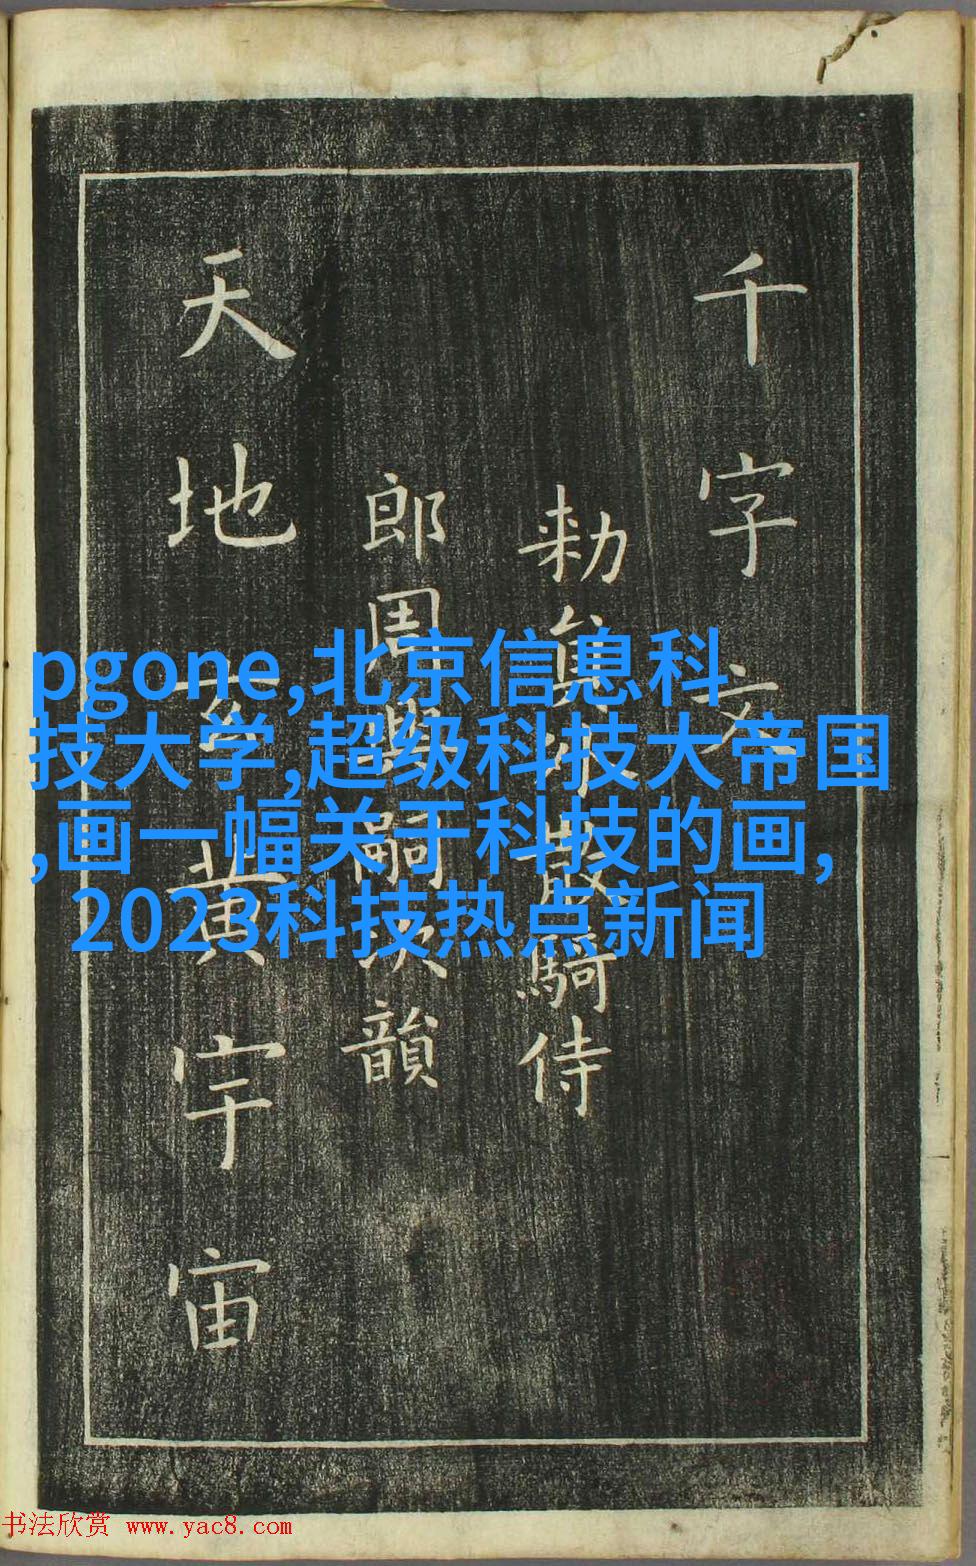 千字文
勑貟外散騎侍
郎周興嗣次韻
天地玄黄宇宙
pgone,北京信息科
技大学,超级科技大帝国
,画一幅关于科技的画,
2023科技热点新闻
书法欣赏 www.yac8.com